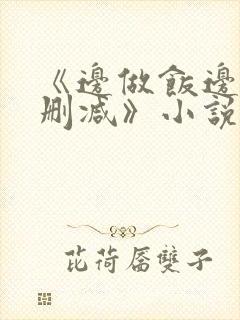 《邊做飯邊
刪減》小說
芘荷羼雙子